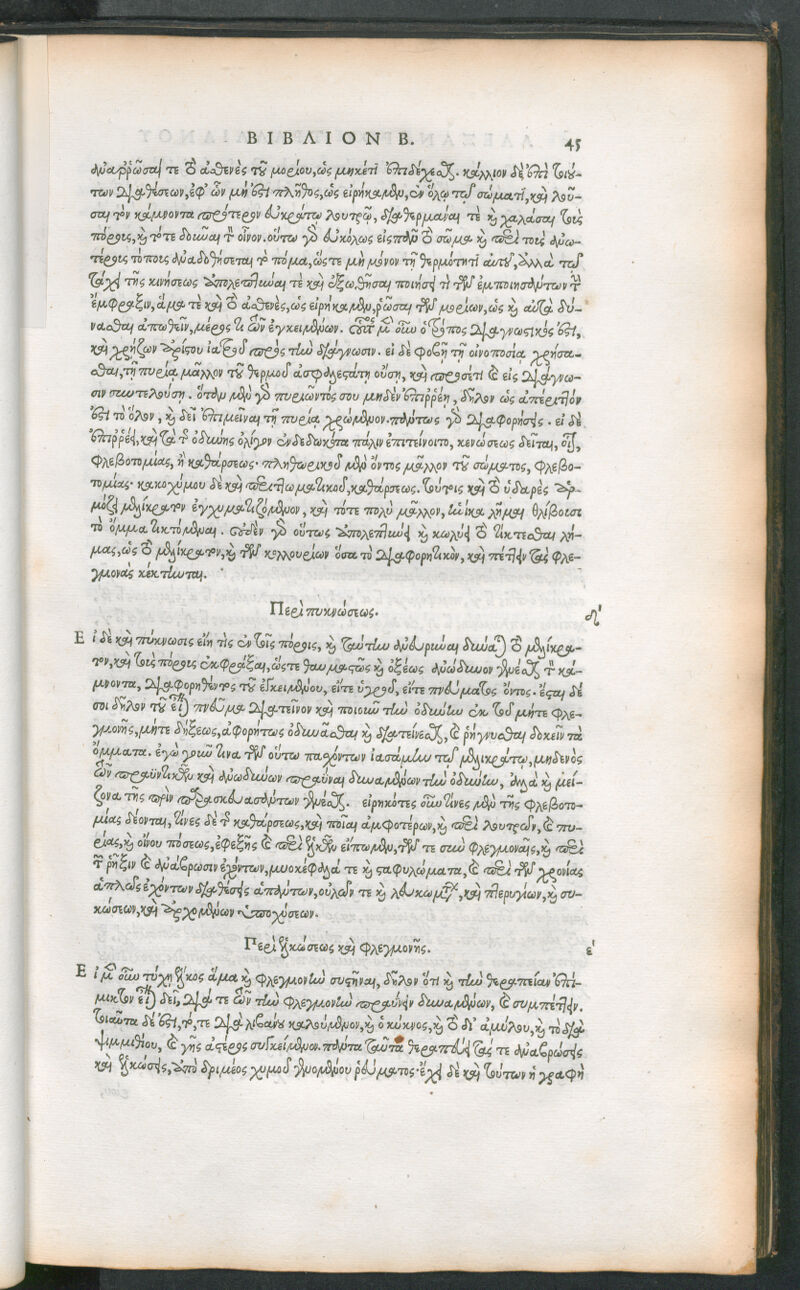 ΒΙΒΛΙΟΝ Β. 45
ἀναῤῥῶσαί τε τὸ ἀσθενὲς τοῦ μορίου, ὡς μηκέτι ἐπιδέχεσθαι. κάλλιον δὲ ἐπὶ τού-
των διαθέσεων, ἐφ' ὧν μή ἐστι πλῆθος, ὡς εἰρήκαμεν, ἐν ὅλῳ τῷ σώματι, καὶ λοῦ-
σαι τὸν κάμνοντα πρότερον εὐκράτῳ λουτρῷ, διαθερμᾶναι τὲ καὶ χαλάσαι τοὺς
πόρους, καὶ τότε δοῦναι τὸν οἶνον. οὕτω γὰρ εὐκόλως εἰς πᾶν τὸ σῶμα καὶ περὶ τοὺς ἀνω-
τέρους τόπους ἀναδοθήσεται τὸ πόμα, ὥστε μὴ μόνον τῇ θερμότητι αὐτοῦ, ἀλλὰ τῷ
τάχει τῆς κινήσεως ἀπολεπτῦναι τὲ καὶ ἐξωθῆσαι ποιήσει τι τῶν ἐμποιησάντων τὴν
ἔμφραξιν, ἅμα τὲ καὶ τὸ ἀσθενὲς, ὡς εἰρήκαμεν, ῥῶσαι τῶν μορίων, ὡς καὶ αὐτὰ δύ-
νασθαι ἀπωθεῖν, μέρος τι τῶν ἐγκειμένων. οὗτος μὲν οὖν ὁ τρόπος διαγνωστικός ἐστι,
καὶ χρήζων ἀρίστου ἰατροῦ πρὸς τὴν διάγνωσιν. εἰ δὲ φοβῇ τῇ οἰνοποσίᾳ χρήσα-
σθαι, τῇ πυρίᾳ μᾶλλον τοῦ θερμοῦ ἀσφαλεστάτῃ οὔσῃ, καὶ προσέτι καὶ εἰς διάγνω-
σιν συντελούσῃ. ὅταν μὲν γὰρ πυριῶντός σου μηδὲν ἐπιῤῥέῃ, δῆλον ὡς ἀπέριττόν
ἐστι τὸ ὅλον, καὶ δεῖ ἐπιμεῖναι τῇ πυρίᾳ χρώμενον. πάντως γὰρ διαφορήσεις. εἰ δὲ
ἐπιῤῥέει, καὶ τὰ τῆς ὀδύνης ὀλίγον ἐνδεδωκότα πάλιν ἐπιτείνοιτο, κενώσεως δεῖται, ἤτοι,
φλεβοτομίας, ἢ καθάρσεως· πληθωρικοῦ μὲν ὄντος μᾶλλον τοῦ σώματος, φλεβο-
τομίας· κακοχύμου δὲ καὶ περιττωματικοῦ, καθάρσεως. τούτοις καὶ τὸ ὑδαρὲς ἁρ-
μόζει μελίκρατον ἐγχυματιζόμενον, καὶ τότε πολὺ μᾶλλον, ἡνίκα λῆμαι θλίβουσι
τὸ ὄμμα τικτόμεναι. οὐδὲν γὰρ οὕτως ἀπολεπτύνει καὶ κωλύει τὸ τίκτεσθαι λή-
μας, ὡς τὸ μελίκρατον, καὶ τῶν κολλουρίων ὅσα τὸ διαφορητικὸν, καὶ πέττειν τὰς φλε-
γμονὰς κέκτηνται.
Περὶ πυκνώσεως. δ'
Εἰ δὲ καὶ πύκνωσις εἴη τὶς ἐν τοῖς πόροις, καὶ ταύτην ἀνευρῦναι δύναται τὸ μελίκρα-
τον, καὶ τοὺς πόρους ἐκφράξαι, ὥστε θαυμαστῶς καὶ ὀξέως ἀνώδυνον γενέσθαι τὸν κά-
μνοντα, διαφορηθέντος τοῦ ἐγκειμένου, εἴτε ὑγροῦ, εἴτε πνεύματος ὄντος· ἔσται δέ
σοι δῆλον τοῦ εἶναι πνεῦμα διατεῖνον καὶ ποιοῦν τὴν ὀδύνην ἐκ τοῦ μήτε φλε-
γμονῆς, μήτε δήξεως, ἀφορήτως ὀδυνᾶσθαι καὶ διατείνεσθαι, καὶ ῥήγνυσθαι δοκεῖν τὰ
ὄμματα. ἐγὼ γοῦν τινα τῶν οὕτω πασχόντων ἰασάμην τῷ μελικράτῳ, μηδενὸς
τῶν πραϋντικῶν καὶ ἀνωδύνων πραῦναι δυναμένων τὴν ὀδύνην, ἀλλὰ καὶ μεί-
ζονα τῆς πρὶν παρασκευασάντων γενέσθαι. εἰρηκότες οὖν τίνες μὲν τῆς φλεβοτο-
μίας δέονται, τίνες δὲ τῆς καθάρσεως, καὶ ποῖαι ἀμφοτέρων, καὶ περὶ λουτρῶν, καὶ πυ-
ρίας, καὶ οἴνου πόσεως, ἐφεξῆς καὶ περὶ ἑλκῶν εἴπωμεν, τῶν τε σὺν φλεγμοναῖς, καὶ περὶ
τῶν ῥῆξιν καὶ ἀνάβρωσιν ἐχόντων, μυοκέφαλά τε καὶ σταφυλώματα, καὶ περὶ τῶν χρονίας
ἁπλῶς ἐχόντων διαθέσεις ἁπάντων, οὐλῶν τε καὶ λευκωμάτων, καὶ πτερυγίων, καὶ συ-
κώσεων, καὶ ἀρχομένων ὑποχύσεων.
Περὶ ἑλκώσεως καὶ φλεγμονῆς. ε'
Εἰ μὲν οὖν τύχῃ ἕλκος ἅμα καὶ φλεγμονὴν συστῆναι, δῆλον ὅτι καὶ τὴν θεραπείαν ἐπί-
μικτον εἶναι δεῖ, διά τε τῶν τὴν φλεγμονὴν πραΰνειν δυναμένων, καὶ συμπέττειν.
τοιαῦτα δέ ἐστι, τό, τε διὰ λιβάνου καλούμενον, καὶ ὁ κύκνος, καὶ τὸ δι' ἀμύλου, καὶ τὸ διὰ
ψιμμιθίου, καὶ γῆς ἀστέρος συγκείμενον. πάντα ταῦτα θεραπεύει τάς τε ἀναβρώσεις
καὶ ἑλκώσεις, ἀπὸ δριμέος χυμοῦ γενομένου ῥεύματος· ἔχει δὲ καὶ τούτων ἡ γραφὴ